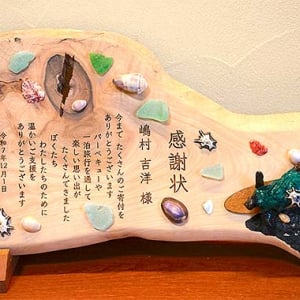 感謝状
嶋村 吉洋 様
今まで たくさんのご寄付を
ありがとうございます
バーベキューや
一泊旅行を通して
楽しい思い出が
たくさんできました
ぼくたち
わたしたちのために
温かいご支援を
ありがとうございます
令和7年12月1日